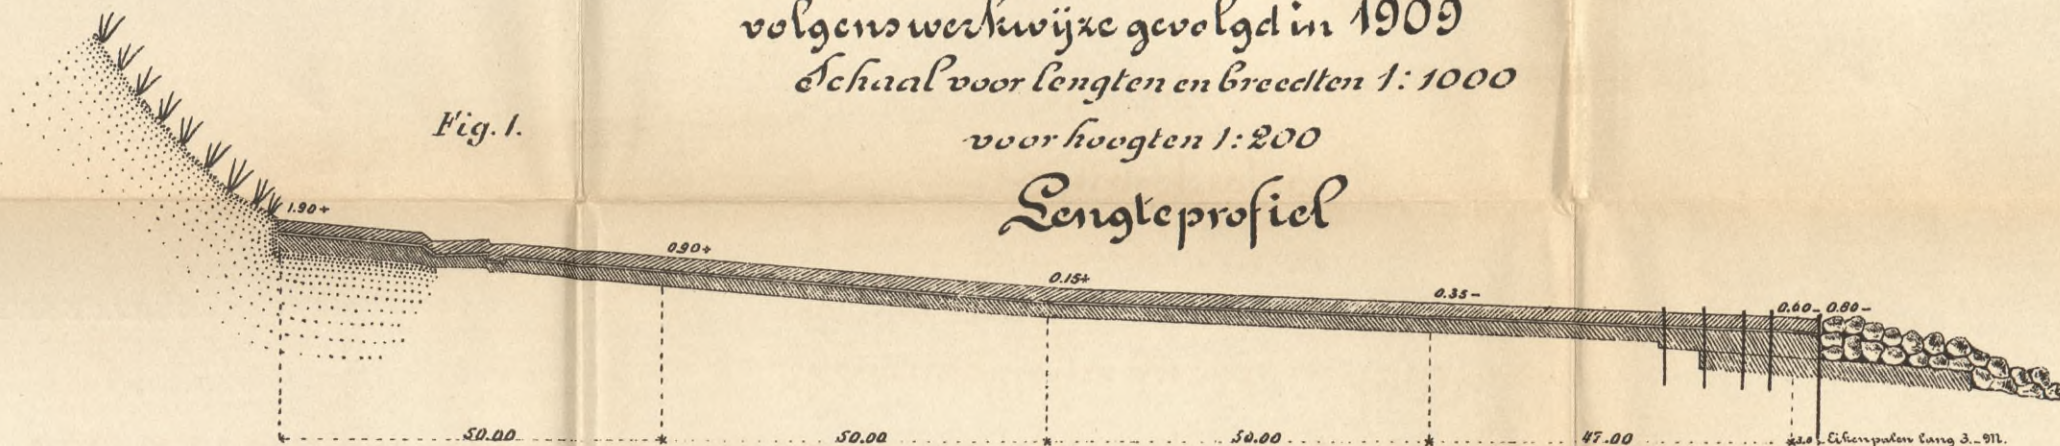 volgens werkwijze gevolgd in 1909
Schaal voor lengten en breedten 1:1000
Fig. 1.
voor hoogten 1:200
Lengteprofiel
1.90+
0.90+
0.15+
0.35-
0.60- 0.80-
50.00 50.00 50.00 47.00 Eikenpalen lang 3.-M.